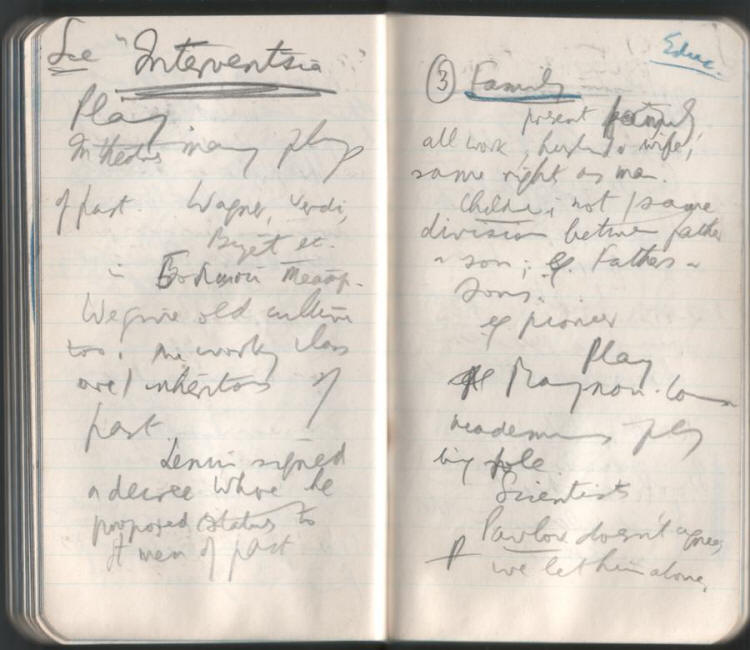 See "Interventsia"
Play
In theatres many plays
of past. Wagner, Verdi,
Bizet etc.
in
We give old culture
too. The working class
are inheritors of
past
Lenin signed
a decree where he
proposed statues to
gt men of past
Educ.
③ Family
present family
all work, husband & wife,
same right as man.
Children, not same
division between father
& son; eg. Fathers &
Sons.
eg pioneer
Play
academicians play
big role.
Scientists
Pavlov doesn't agree,
we let him alone,